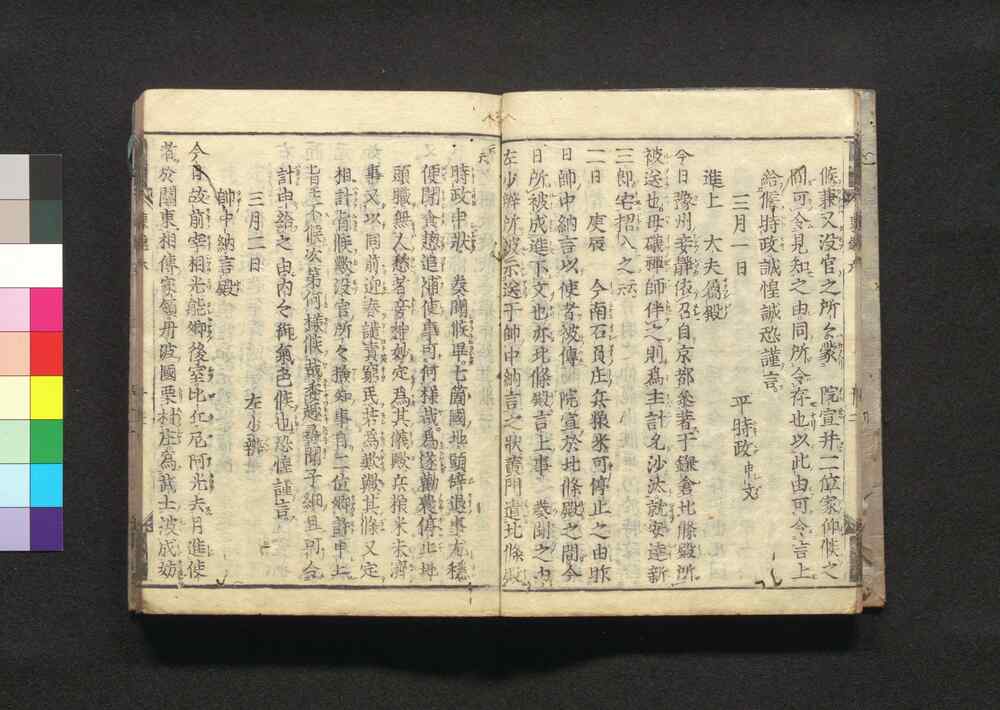 候兼又没官之所々蒙　院宣并二位家仰候之
間可令見知之由同所令存也以此由可令言上
給候時政誠惶誠恐謹言
三月一日　　　平時政申文
進上　大夫属殿
今日豫州妾静依召自京都参著于鎌倉北條殿所
被送也母礒禅師伴之則為主計允沙汰就安達新
三郎宅招入之云々
二日　庚辰　今南石負庄兵粮米可停止之由昨
日帥中納言以使者被傳　院宣於北條殿之間今
日所被成進下文也亦北條殿言上事　奏聞之由
左少辨所被示送于帥中納言之状黄門遣北條殿
時政申状　奏聞候畢七箇國地頭辞退事尤穏
便聞食惣追捕使事可何様哉為遂勧農停止地
頭職無人愁者皆神妙定為其儀歟兵粮米未濟
事又以同前迎春譴責窮民若為歎歟其條又定
相計旨候歟没官所々撿知事自二位卿許申上
皆了候次第何様候哉委趣尋聞子細且可令
計申給之由内々御氣色候也恐惶謹言
三月二日　　　左少辨
帥中納言殿
今日故前宰相光能卿後室比丘尼阿光去月進使
者於關東相傳家領丹波國栗村庄為武士被成妨